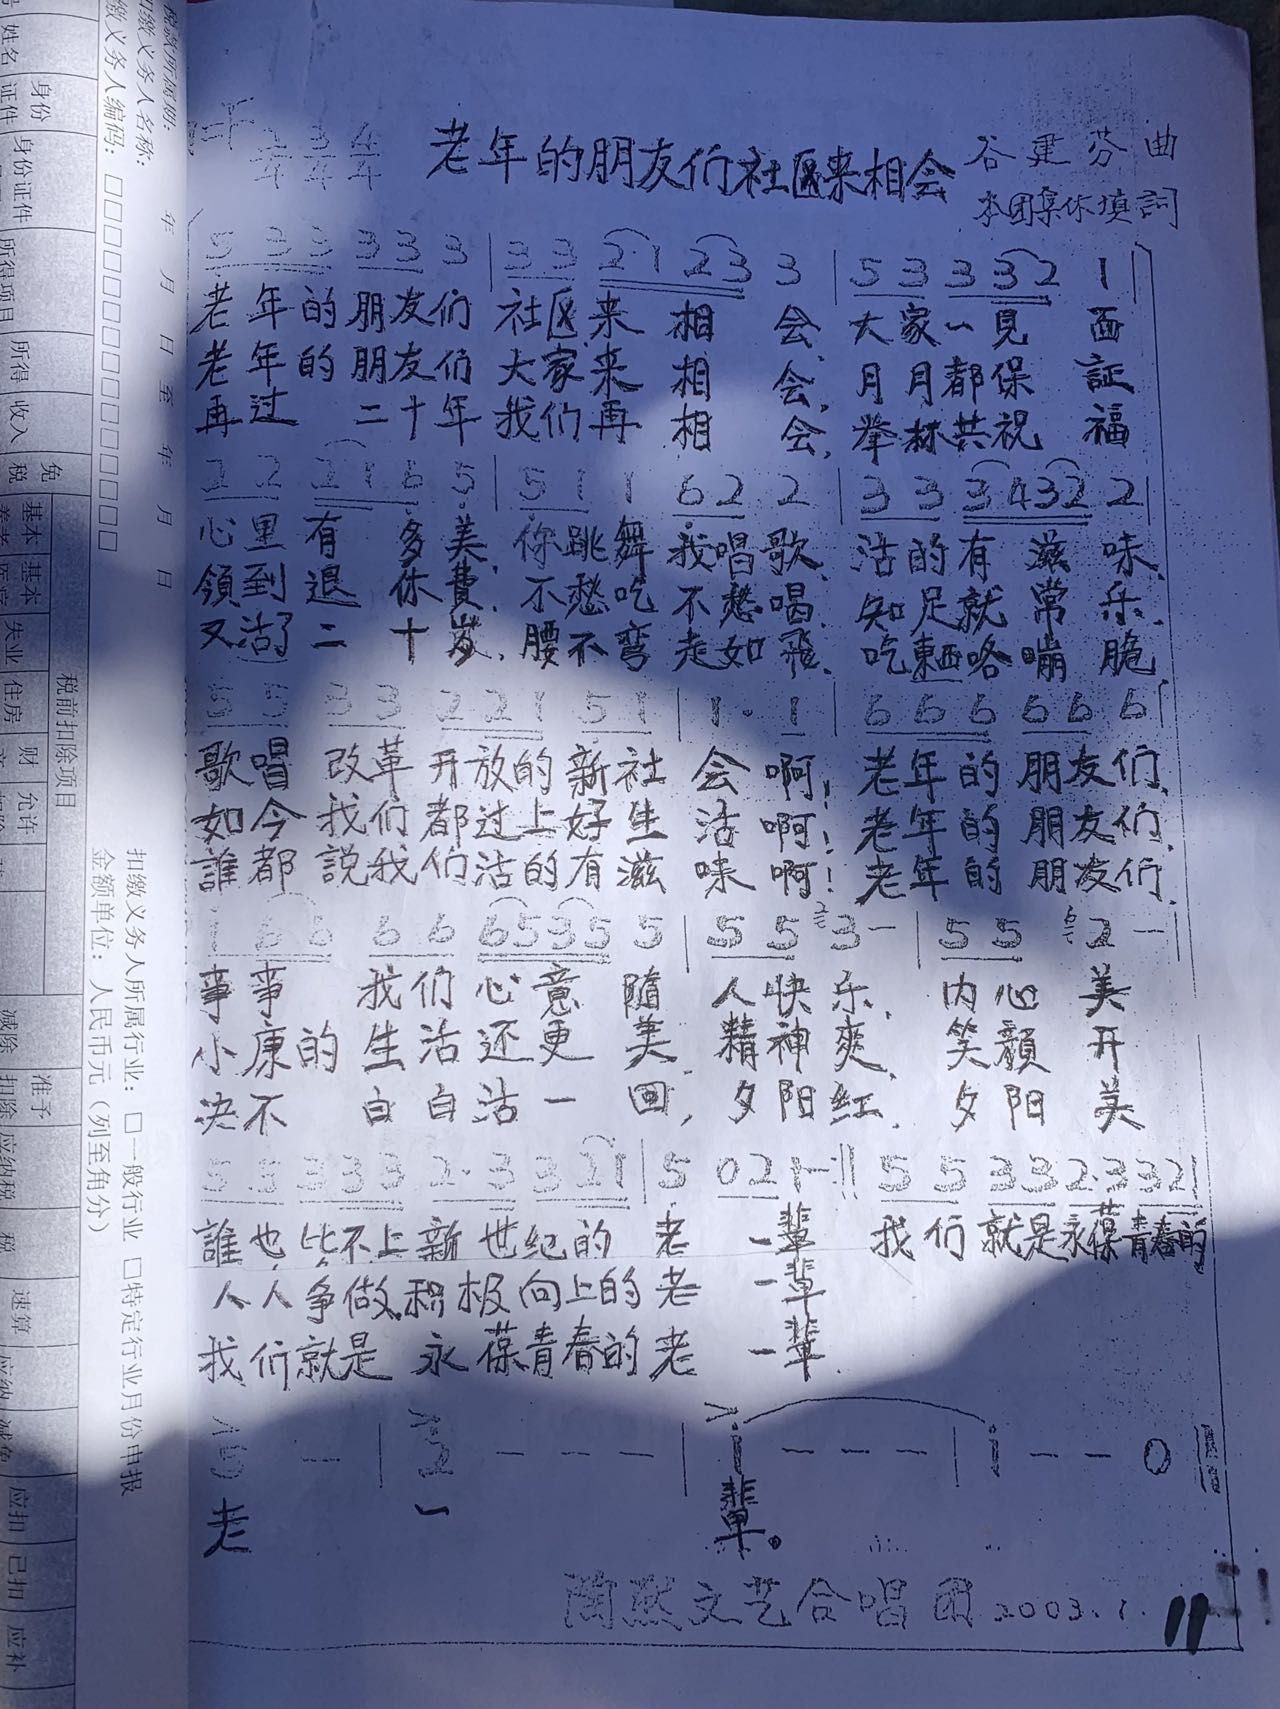 老年的朋友们社区来相会
谷建芬 曲
本团集体填詞
5 3 3 3 3 3 3 3 2·1 2 3 3 | 5 3 3 3 2 1 |
老年的朋友们 社区来 相 会 大家一見 面
老年的朋友们 大家来 相 会 月月都保 証
再过 二十年 我们再 相 会 举杯共祝 福
2 2 2 1 6 5 5 1 1 6 2 2 | 3 3 3 4 3 2 2 |
心里有 多美 你跳舞 我唱歌 活的有 滋 味
領到退 休費 不愁吃 不愁喝 知足就 常 乐
又活了二 十岁 腰不弯 走如飛 吃東西咯 嘣 脆
5 3 3 3 2 2 1 5 1 | 1 · 1 | 6 6 6 6 6 6 |
歌唱 改革 开放的新社 会 啊! 老年的朋友们
如今 我们 都过上好生 活 啊! 老年的朋友们
誰都 説我们活的有滋 味 啊! 老年的朋友们
1 6 6 6 6 6 5 3 5 5 | 5 5 3 — | 5 5 2 —
事事 我们心意 随 人快乐 内心 美
小康的 生活还更 美 精神爽 笑顏 开
决不 白白活一 回 夕阳红 夕阳 美
5 5 3 3 3 2· 3 3 2 1 | 5 0 2 1 — :|| 5 5 3 3 2·3 3 2 1
誰也比不上新世纪的 老 一輩 我们就是永葆青春的
人人争做积极向上的老 一輩
我们就是 永葆青春的老 一輩
5 — | 2 — — — | 1 — — — | 1 — — 0 ||
老 一 輩。
文艺合唱团 2003.1.
11
税款所属期: 年 月 日 至 年 月 日
扣缴义务人名称:
扣缴义务人编码: □□□□□□□□□□□□□□□
扣缴义务人所属行业: □一般行业 □特定行业月份申报
金额单位: 人民币元(列至角分)
姓名
身份证件
身份证件
所得项目
所得
收入
免税
税前扣除项目
基本
基本
失业
住房
财
允许
减除
准予扣除
应纳税
税
速算
应纳
减免
应扣
已扣
应补